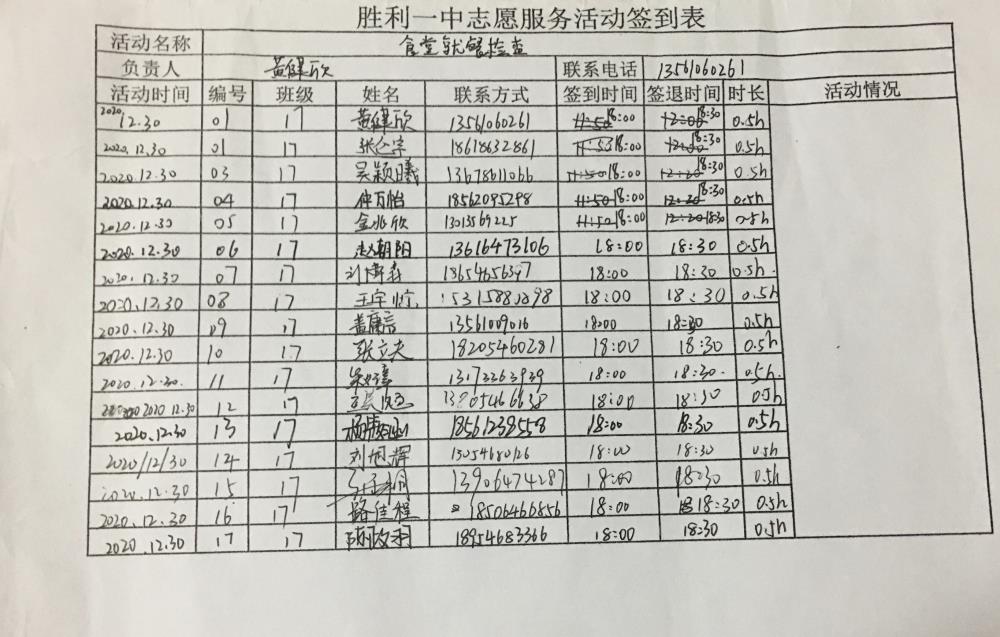 胜利一中志愿服务活动签到表
活动名称 食堂就餐检查
负责人 黄健欣 联系电话 13561060261
活动时间 编号 班级 姓名 联系方式 签到时间 签退时间 时长 活动情况
2020.12.30 01 17 黄健欣 13561060261 11:50 18:00 12:00 18:30 0.5h
2020.12.30 01 17 18618632861 18:00 18:30 0.5h
2020.12.30 03 17 吴颖曦 13678611066 11:50 18:00 12:20 18:30 0.5h
2020.12.30 04 17 仲万怡 18562095298 11:50 18:00 12:20 18:30 0.5h
2020.12.30 05 17 金兆欣 13013569225 11:50 18:00 12:20 18:30 0.5h
2020.12.30 06 17 赵朝阳 13616473106 18:00 18:30 0.5h
2020.12.30 07 17 18654656397 18:00 18:30 0.5h
2020.12.30 08 17 18:00 18:30 0.5h
2020.12.30 09 17 盖康言 13561009016 18:00 18:30 0.5h
2020.12.30 10 17 张立夫 18205460281 18:00 18:30 0.5h
2020.12.30. 11 17 13173363939 18:00 18:30. 0.5h.
2020 12.30 12 17 18:00 18:30 0.5h
2020.12.30 13 17 18561238558 18:00 18:30 0.5h
2020/12/30 14 17 刘旭辉 13054680126 18:00 18:30 0.5h
2020.12.30 15 17 13906474287 18:00 18:30 0.5h
2020.12.30 16 17 路佳程 18506466856 18:00 18:30 0.5h
2020.12.30 17 17 18954683366 18:00 18:30 0.5h